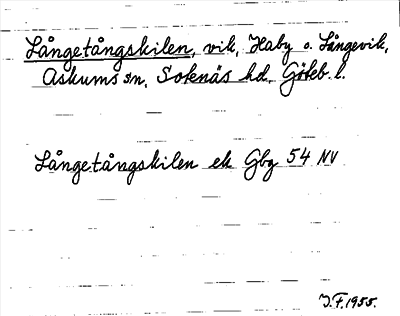 Långetångskilen, vik, Haby o. Långevik,
Askums sn, Sotenäs hd, Göteb. l.
Långetångskilen ek Gbg 54 NV
J.F. 1955.